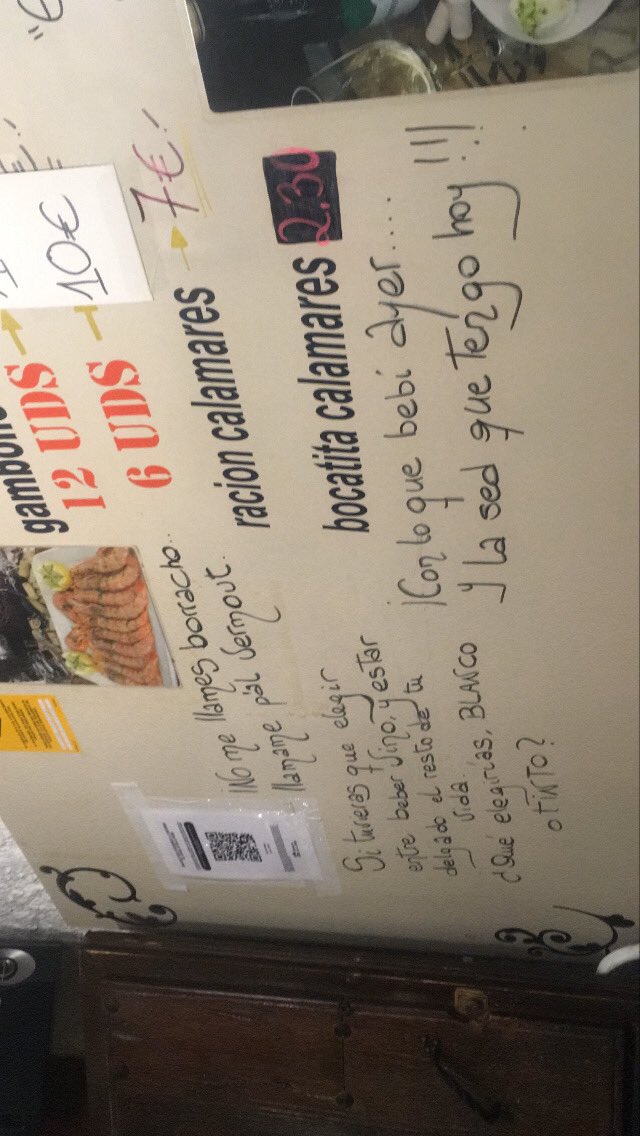 12 UDS
6 UDS
10€
racion calamares
7€!
bocatita calamares
2.30
¡No me llames borracho..
llamame p'al Vermout.
Si tuvieras que elegir
entre beber vino, y estar
delgado el resto de tu
vida.
¿Qué elegirías, BLANCO
o TINTO?
¡Con lo que bebí ayer....
y la sed que tengo hoy!!!